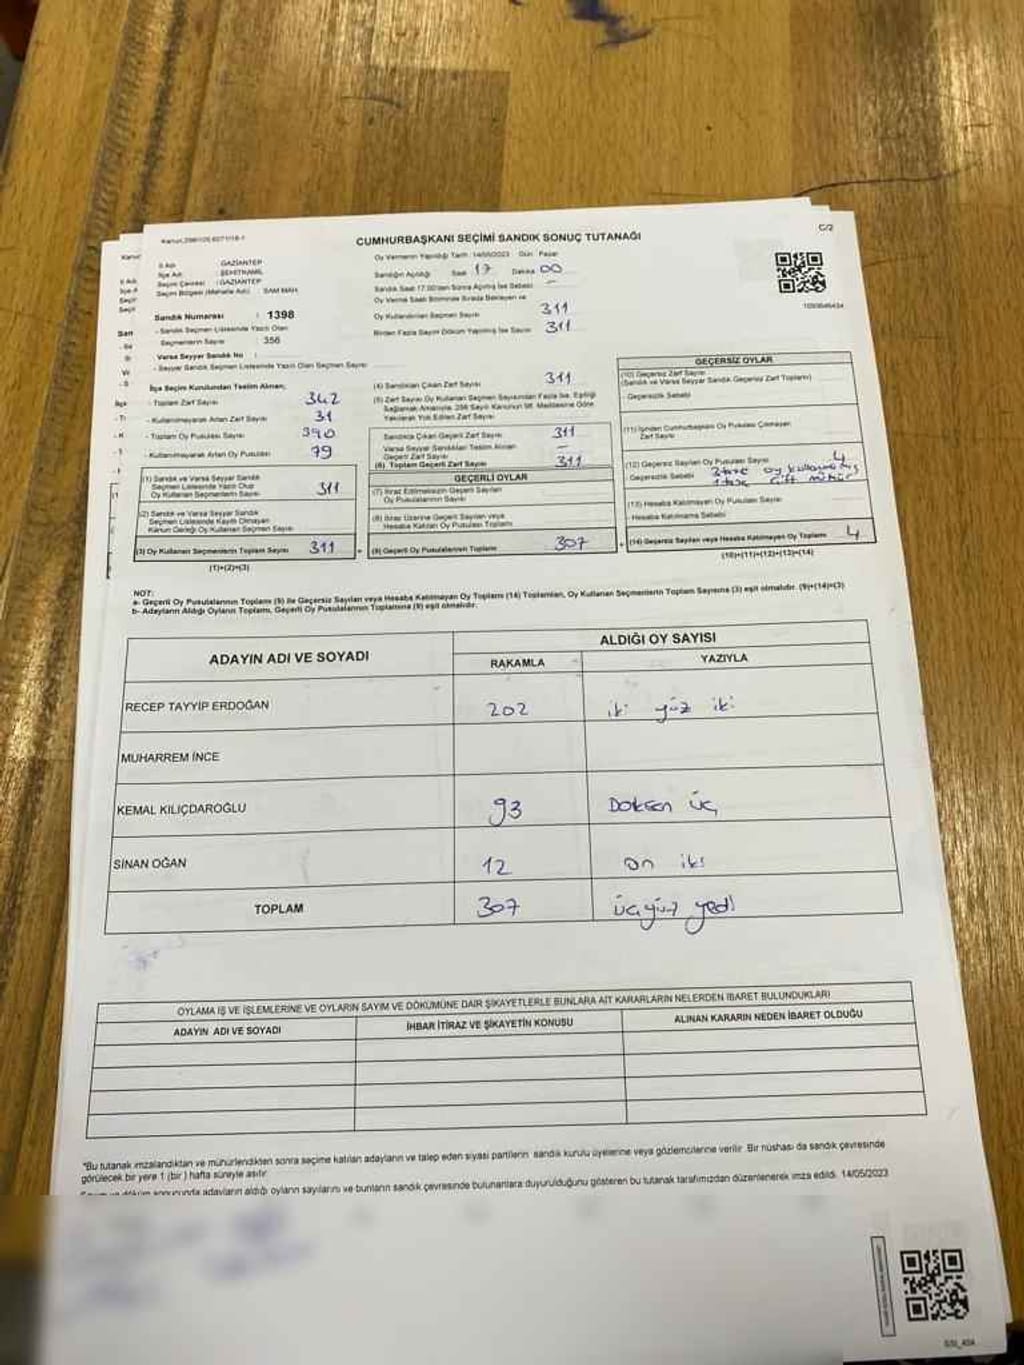 C/2
CUMHURBAŞKANI SEÇİMİ SANDIK SONUÇ TUTANAĞI
İl Adı : GAZİANTEP
İlçe Adı : ŞEHİTKAMİL
Seçim Çevresi : GAZİANTEP
Seçim Bölgesi (Mahalle Adı) : SAM MAH.
Sandık Numarası : 1398
- Sandık Seçmen Listesinde Yazılı Olan
Seçmenlerin Sayısı : 356
Varsa Seyyar Sandık No :
- Seyyar Sandık Seçmen Listesinde Yazılı Olan Seçmen Sayısı
Oy Vermenin Yapıldığı Tarih : 14/05/2023 Gün : Pazar
Sandığın Açıldığı Saat 17 Dakika 00
Sandık Saat 17.00'den Sonra Açılmış İse Sebebi -
Oy Verme Saati Bitiminde Sırada Bekleyen ve
Oy Kullandırılan Seçmen Sayısı 311
Birden Fazla Sayım Döküm Yapılmış İse Sayısı 311
İlçe Seçim Kurulundan Teslim Alınan;
- Toplam Zarf Sayısı 342
- Kullanılmayarak Artan Zarf Sayısı 31
- Toplam Oy Pusulası Sayısı 390
- Kullanılmayarak Artan Oy Pusulası 79
(1) Sandık ve Varsa Seyyar Sandık
Seçmen Listesinde Yazılı Olup
Oy Kullanan Seçmenlerin Sayısı 311
(2) Sandık ve Varsa Seyyar Sandık
Seçmen Listesinde Kayıtlı Olmayan
Kanun Gereği Oy Kullanan Seçmen Sayısı
(3) Oy Kullanan Seçmenlerin Toplam Sayısı 311
(1)+(2)=(3)
(4) Sandıktan Çıkan Zarf Sayısı 311
(5) Zarf Sayısı Oy Kullanan Seçmen Sayısından Fazla İse, Eşitliği
Sağlamak Amacıyla, 298 Sayılı Kanunun 98. Maddesine Göre
Yakılarak Yok Edilen Zarf Sayısı
Sandıkta Çıkan Geçerli Zarf Sayısı 311
Varsa Seyyar Sandıktan Teslim Alınan
Geçerli Zarf Sayısı -
(6) Toplam Geçerli Zarf Sayısı 311
GEÇERLİ OYLAR
(7) İtiraz Edilmeksizin Geçerli Sayılan
Oy Pusulalarının Sayısı
(8) İtiraz Üzerine Geçerli Sayılan veya
Hesaba Katılan Oy Pusulası Toplamı
(9) Geçerli Oy Pusulalarının Toplamı 307
GEÇERSİZ OYLAR
(10) Geçersiz Zarf Sayısı
(Sandık ve Varsa Seyyar Sandık Geçersiz Zarf Toplamı)
- Geçersizlik Sebebi
(11) İçinden Cumhurbaşkanı Oy Pusulası Çıkmayan
Zarf Sayısı
(12) Geçersiz Sayılan Oy Pusulası Sayısı 4
- Geçersizlik Sebebi 3 tane oy kullanılmamış
1 tane çift mühür
(13) Hesaba Katılmayan Oy Pusulası Sayısı
- Hesaba Katılmama Sebebi
(14) Geçersiz Sayılan veya Hesaba Katılmayan Oy Toplamı 4
(10)+(11)+(12)+(13)=(14)
NOT:
a- Geçerli Oy Pusulalarının Toplamı (9) ile Geçersiz Sayılan veya Hesaba Katılmayan Oy Toplamı (14) Toplamları, Oy Kullanan Seçmenlerin Toplam Sayısına (3) eşit olmalıdır. (9)+(14)=(3)
b- Adayların Aldığı Oyların Toplamı, Geçerli Oy Pusulalarının Toplamına (9) eşit olmalıdır.
ADAYIN ADI VE SOYADI
ALDIĞI OY SAYISI
RAKAMLA YAZIYLA
RECEP TAYYİP ERDOĞAN 202 iki yüz iki
MUHARREM İNCE
KEMAL KILIÇDAROĞLU 93 Doksan üç
SİNAN OĞAN 12 on iki
TOPLAM 307 üçyüz yedi
OYLAMA İŞ VE İŞLEMLERİNE VE OYLARIN SAYIM VE DÖKÜMÜNE DAİR ŞİKAYETLERLE BUNLARA AİT KARARLARIN NELERDEN İBARET BULUNDUKLARI
ADAYIN ADI VE SOYADI İHBAR İTİRAZ VE ŞİKAYETİN KONUSU ALINAN KARARIN NEDEN İBARET OLDUĞU
*Bu tutanak imzalandıktan ve mühürlendikten sonra seçime katılan adayların ve talep eden siyasi partilerin sandık kurulu üyelerine veya gözlemcilerine verilir. Bir nüshası da sandık çevresinde
görülecek bir yere 1 (bir) hafta süreyle asılır.
Sayım ve döküm sonucunda adayların aldığı oyların sayılarını ve bunların sandık çevresinde bulunanlara duyurulduğunu gösteren bu tutanak tarafımızdan düzenlenerek imza edildi. 14/05/2023